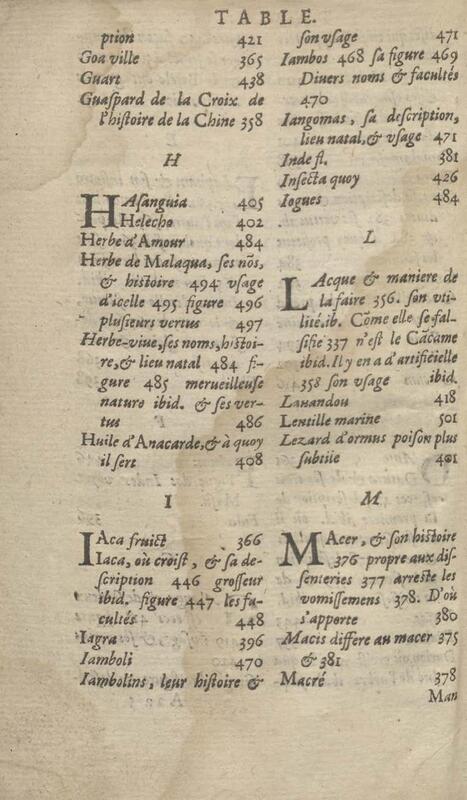 TABLE.
ption 421
Goa ville 365
Guart 438
Guaspard de la Croix de
l'histoire de la Chine 358
H
HAsanguia 405
Helecho 402
Herbe d'Amour 484
Herbe de Malaqua, ses nõs,
& histoire 494 vsage
d'icelle 495 figure 496
plusieurs vertus 497
Herbe-viue, ses noms, histoi-
re, & lieu natal 484 fi-
gure 485 merueilleuse
nature ibid. & ses ver-
tus 486
Huile d'Anacarde, & à quoy
il sert 408
I
IAca fruict 366
Iaca, où croist, & sa de-
scription 446 grosseur
ibid. figure 447 les fa-
cultés 448
Iagra 396
Iamboli 470
Iambolins, leur histoire &
son vsage 471
Iambos 468 sa figure 469
Diuers noms & facultés
470
Iangomas, sa description,
lieu natal, & vsage 471
Inde fl. 381
Insecta quoy 426
Iogues 484
L
LAcque & maniere de
la faire 356. son vti-
lité. ib. Cõme elle se fal-
sifie 337 n'est le Cãcame
ibid. Il y en a d'artificielle
358 son vsage ibid.
Lauandou 418
Lentille marine 501
Lezard d'ormus poison plus
subtile 401
M
MAcer, & son histoire
376 propre aux dis-
senteries 377 arreste les
vomissemens 378. D'où
s'apporte 380
Macis differe au macer 375
& 381
Macré 378
Man